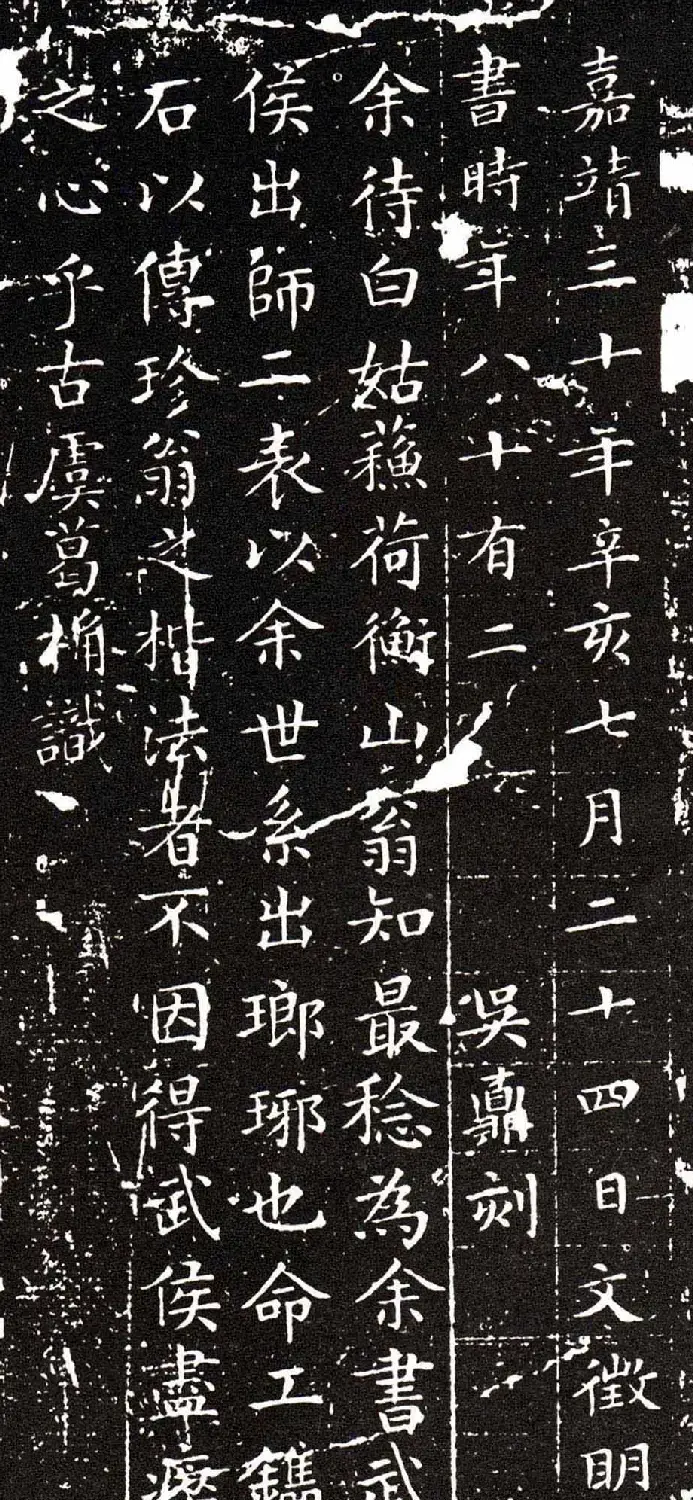 嘉靖三十年辛亥七月二十四日文徵明
書時年八十有二 吳鼒刻
余待白姑蘓荷衡山翁知最稔為余書武
侯出師二表以余世系出瑯琊也命工鐫
石以傳珍翁之楷法者不因得武侯盡瘁
之心乎古虞葛桷識